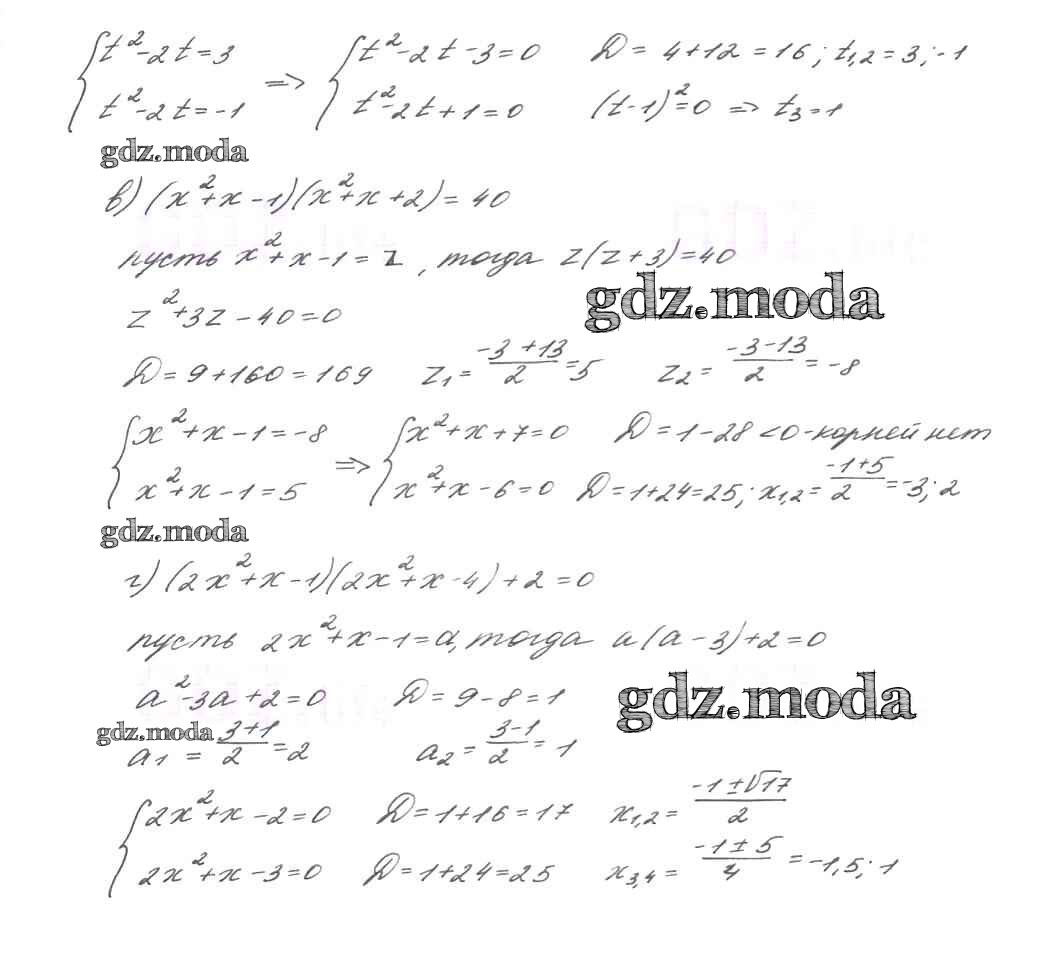 {t²-2t=3 => {t²-2t-3=0 D=4+12=16; t₁,₂=3; -1
{t²-2t=-1 {t²-2t+1=0 (t-1)²=0 => t₃=1
gdz.moda
в) (x²+x-1)(x²+x+2)=40
пусть x²+x-1=z, тогда z(z+3)=40
z²+3z-40=0
gdz.moda
D=9+160=169 z₁=(-3+13)/2=5 z₂=(-3-13)/2=-8
{x²+x-1=-8 => {x²+x+7=0 D=1-28<0-корней нет
{x²+x-1=5 {x²+x-6=0 D=1+24=25; x₁,₂=(-1+5)/2=-3; 2
gdz.moda
г) (2x²+x-1)(2x²+x-4)+2=0
пусть 2x²+x-1=a, тогда a(a-3)+2=0
a²-3a+2=0 D=9-8=1
gdz.moda
gdz.moda
a₁=(3+1)/2=2 a₂=(3-1)/2=1
{2x²+x-2=0 D=1+16=17 x₁,₂=(-1±√17)/2
{2x²+x-3=0 D=1+24=25 x₃,₄=(-1±5)/4=-1,5; 1